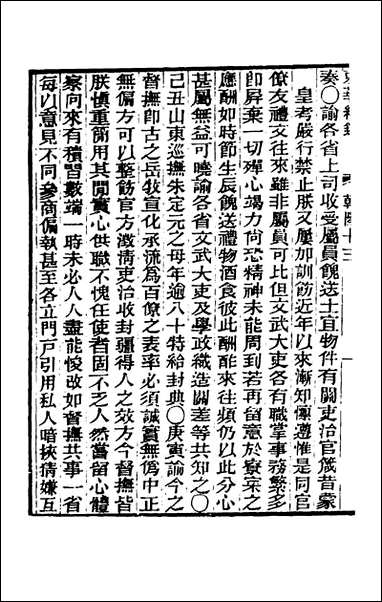 奏○諭各省上司收受屬員餽送土宜物件有關吏治官箴昔蒙
皇考嚴行禁止朕又屢加訓飭近年以來漸知懍遵惟是同官
僚友禮文往來雖非屬員可比但文武大吏各有職掌事務繁多
即屏棄一切殫心竭力尚恐精神未能周到若再留意於寮寀之
應酬如時節生辰餽送禮物酒食彼此酬酢來往頻仍以此分心
甚屬無益可曉諭各省文武大吏及學政織造關差等共知之○
己丑山東巡撫朱定元之母年逾八十特給封典○庚寅諭今之
督撫即古之岳牧宣化承流為百僚之表率必須誠實無偽中正
無偏方可以整飭官方澂淸吏治收封疆得人之效方今督撫皆
朕慎重簡用其閒實心供職不愧任使者固不乏人然嘗留心體
察向來有積習數端一時未必人人盡能悛改如督撫共事一省
每以意見不同參商偏執甚至各立門戶引用私人暗挾猜嫌互